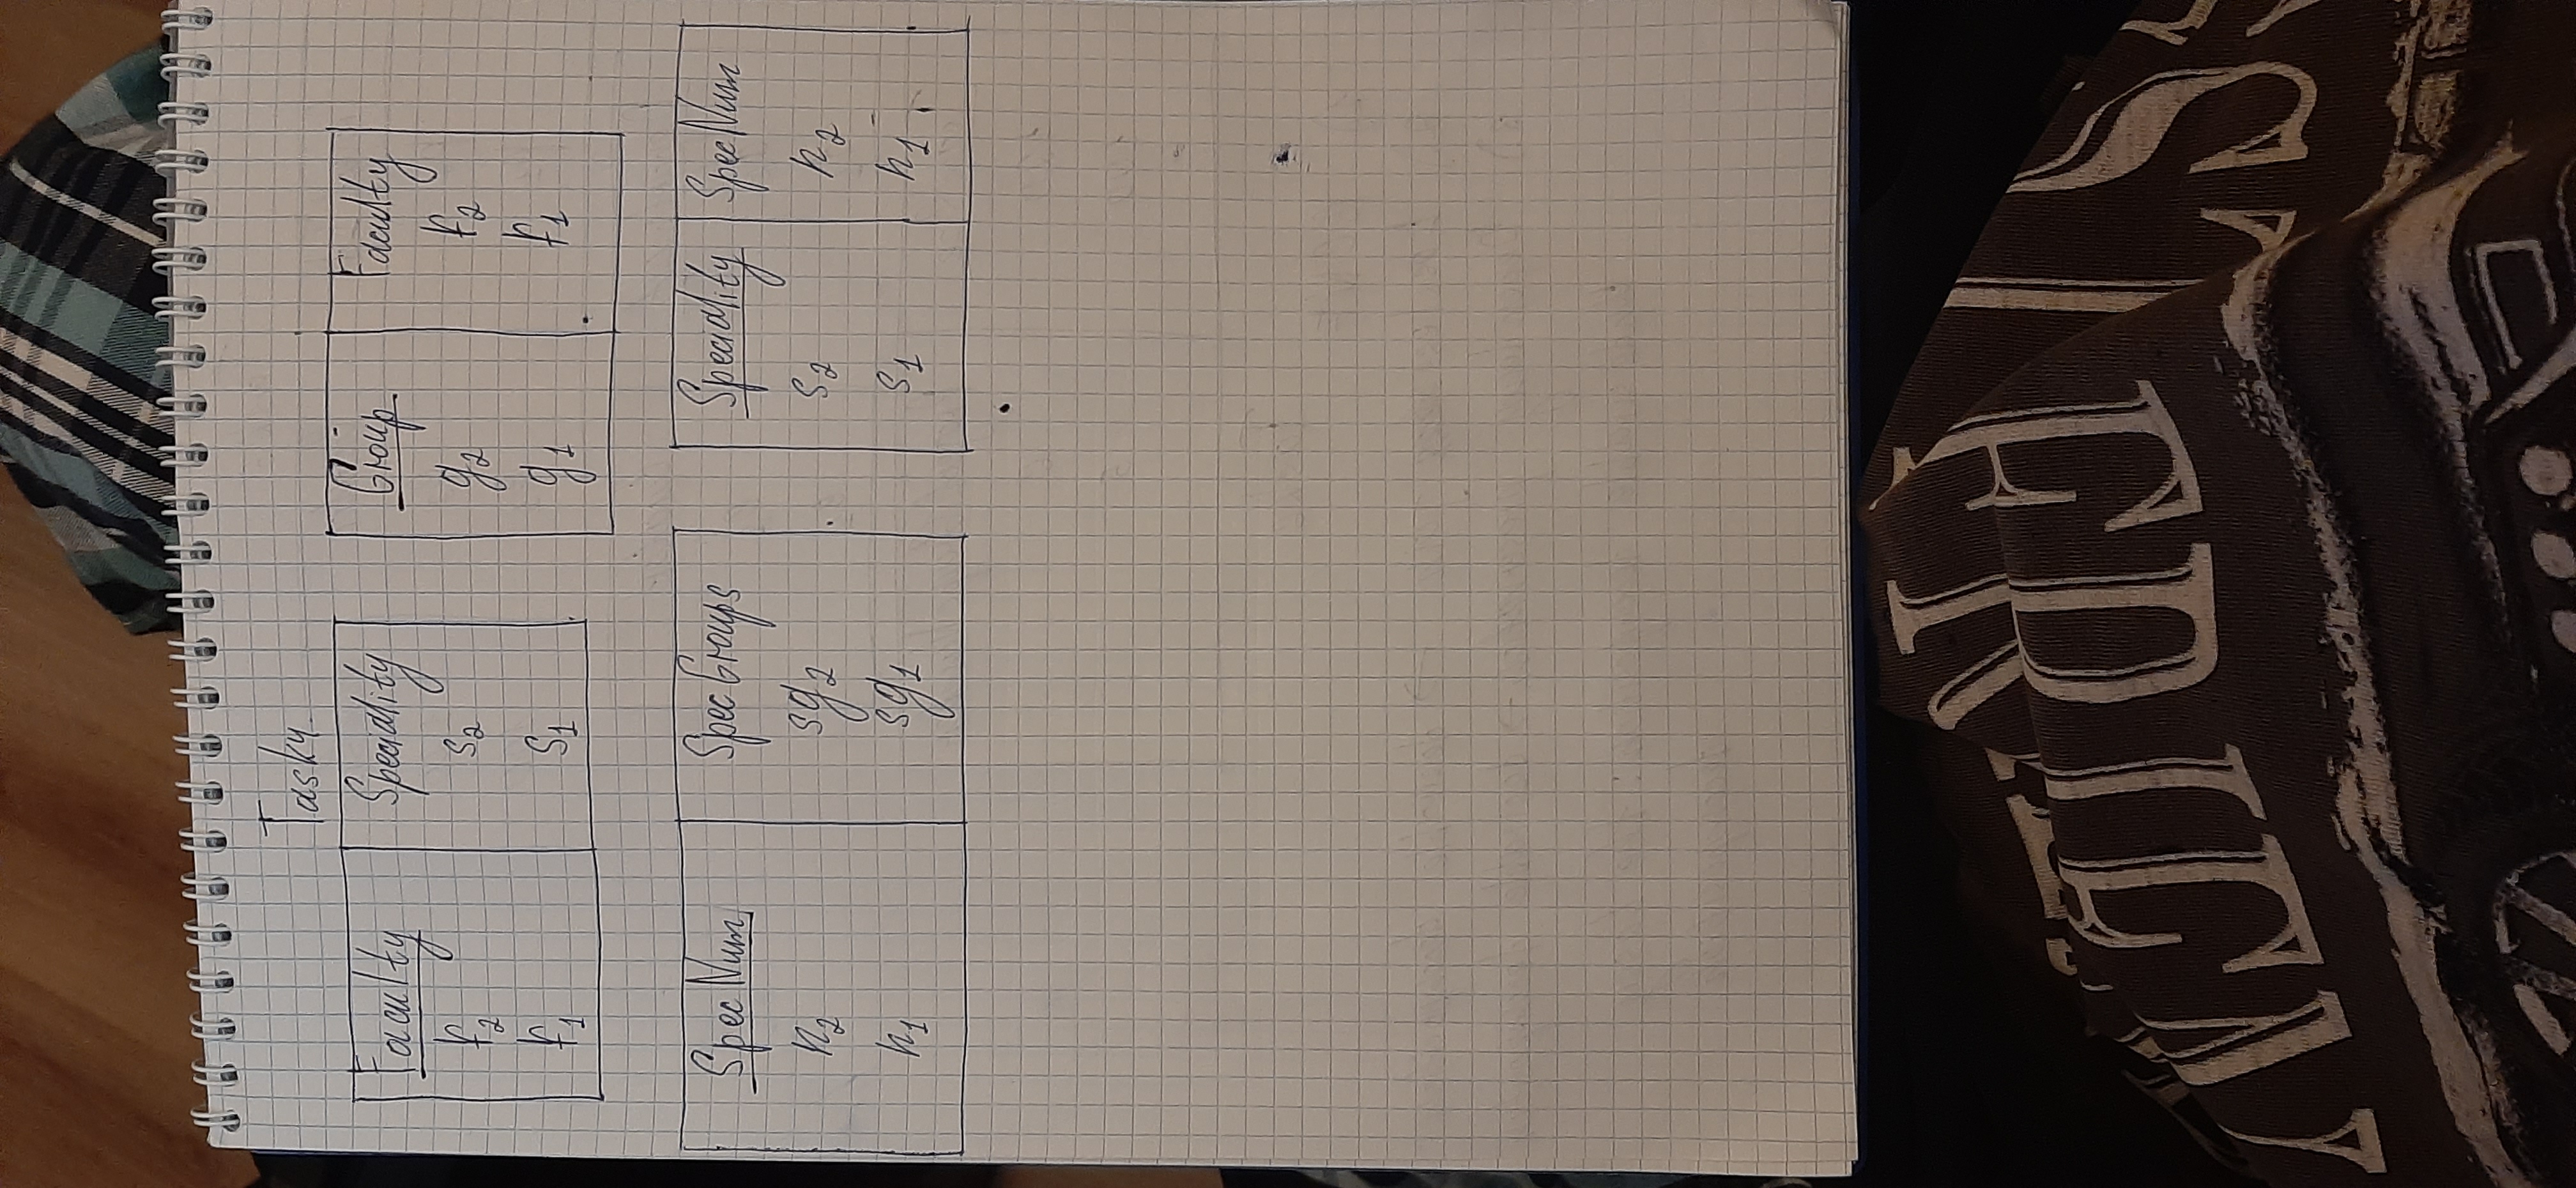 Task4.
Faculty Speciality
f2 s2
f1 s1
Group Faculty
g2 f2
g1 f1
SpecNum SpecGroups
n2 sg2
n1 sg1
Speciality SpecNum
s2 n2
s1 n1